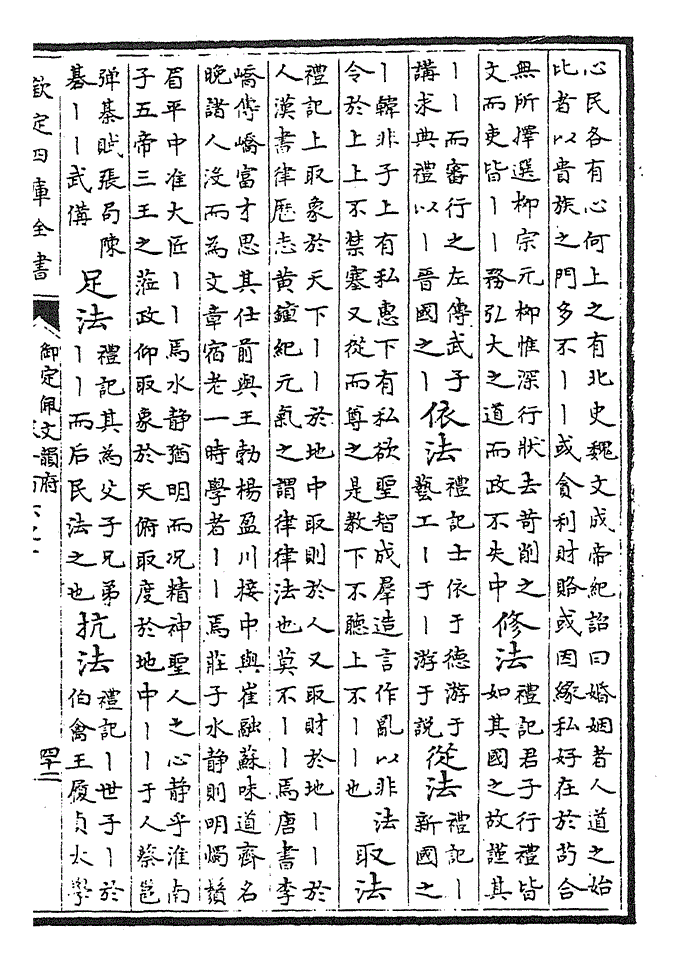 心民各有心何上之有北史魏文成帝紀詔曰婚姻者人道之始
比者以貴族之門多不丨丨或貪利財賂或因緣私好在於苟合
無所擇選柳宗元柳惟深行狀去苛削之
文而吏皆丨丨務弘大之道而政不失中
修法
禮記君子行禮皆
如其國之故謹其
丨丨而審行之左傳武子
講求典禮以丨晉國之丨
依法
禮記士依于德游于
藝工丨于丨游于說
從法
禮記丨
新國之
丨韓非子上有私惠下有私欲聖智成羣造言作亂以非法
令於上上不禁塞又從而尊之是教下不聽上不丨丨也
取法
禮記上取象於天下丨丨於地中取則於人又取財於地丨丨於
人漢書律歷志黃鐘紀元氣之謂律律法也莫不丨丨焉唐書李
嶠傳嶠富才思其仕前與王勃楊盈川接中與崔融蘇味道齊名
晚諸人沒而為文章宿老一時學者丨丨焉莊子水静則明燭鬚
眉平中准大匠丨丨焉水静猶明而况精神聖人之心静乎淮南
子五帝三王之蒞政仰取象於天俯取度於地中丨丨于人蔡邕
彈棊賦張局陳
棊丨丨武備
足法
禮記其為父子兄弟
丨丨而后民法之也
抗法
禮記丨世子丨於
伯禽王履貞太學
欽定四庫全書
御定佩文韻府
四十二